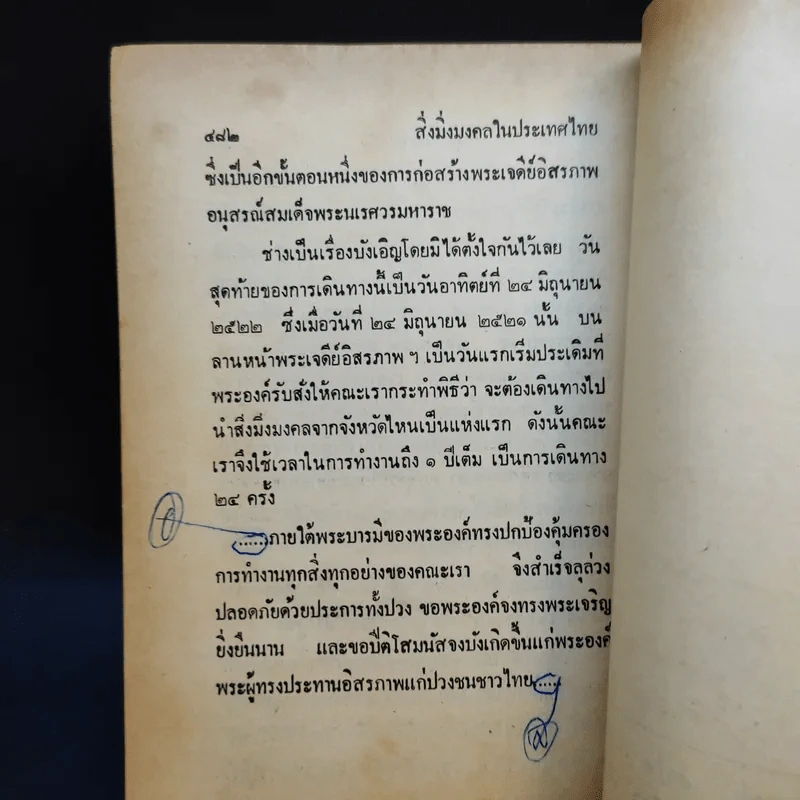 ๔๘๒ สิ่งมิ่งมงคลในประเทศไทย
ซึ่งเป็นอีกขั้นตอนหนึ่งของการก่อสร้างพระเจดีย์อิสรภาพ
อนุสรณ์สมเด็จพระนเรศวรมหาราช
ช่างเป็นเรื่องบังเอิญโดยมิได้ตั้งใจกันไว้เลย วัน
สุดท้ายของการเดินทางนี้เป็นวันอาทิตย์ที่ ๒๔ มิถุนายน
๒๕๒๒ ซึ่งเมื่อวันที่ ๒๔ มิถุนายน ๒๕๒๑ นั้น บน
ลานหน้าพระเจดีย์อิสรภาพ ฯ เป็นวันแรกเริ่มประเดิมที่
พระองค์รับสั่งให้คณะเรากระทำพิธีว่า จะต้องเดินทางไป
นำสิ่งมิ่งมงคลจากจังหวัดไหนเป็นแห่งแรก ดังนั้นคณะ
เราจึงใช้เวลาในการทำงานถึง ๑ ปีเต็ม เป็นการเดินทาง
๒๔ ครั้ง
......ภายใต้พระบารมีของพระองค์ทรงปกป้องคุ้มครอง
การทำงานทุกสิ่งทุกอย่างของคณะเรา จึงสำเร็จลุล่วง
ปลอดภัยด้วยประการทั้งปวง ขอพระองค์จงทรงพระเจริญ
ยิ่งยืนนาน และขอปีติโสมนัสจงบังเกิดขึ้นแก่พระองค์
พระผู้ทรงประทานอิสรภาพแก่ปวงชนชาวไทย.....